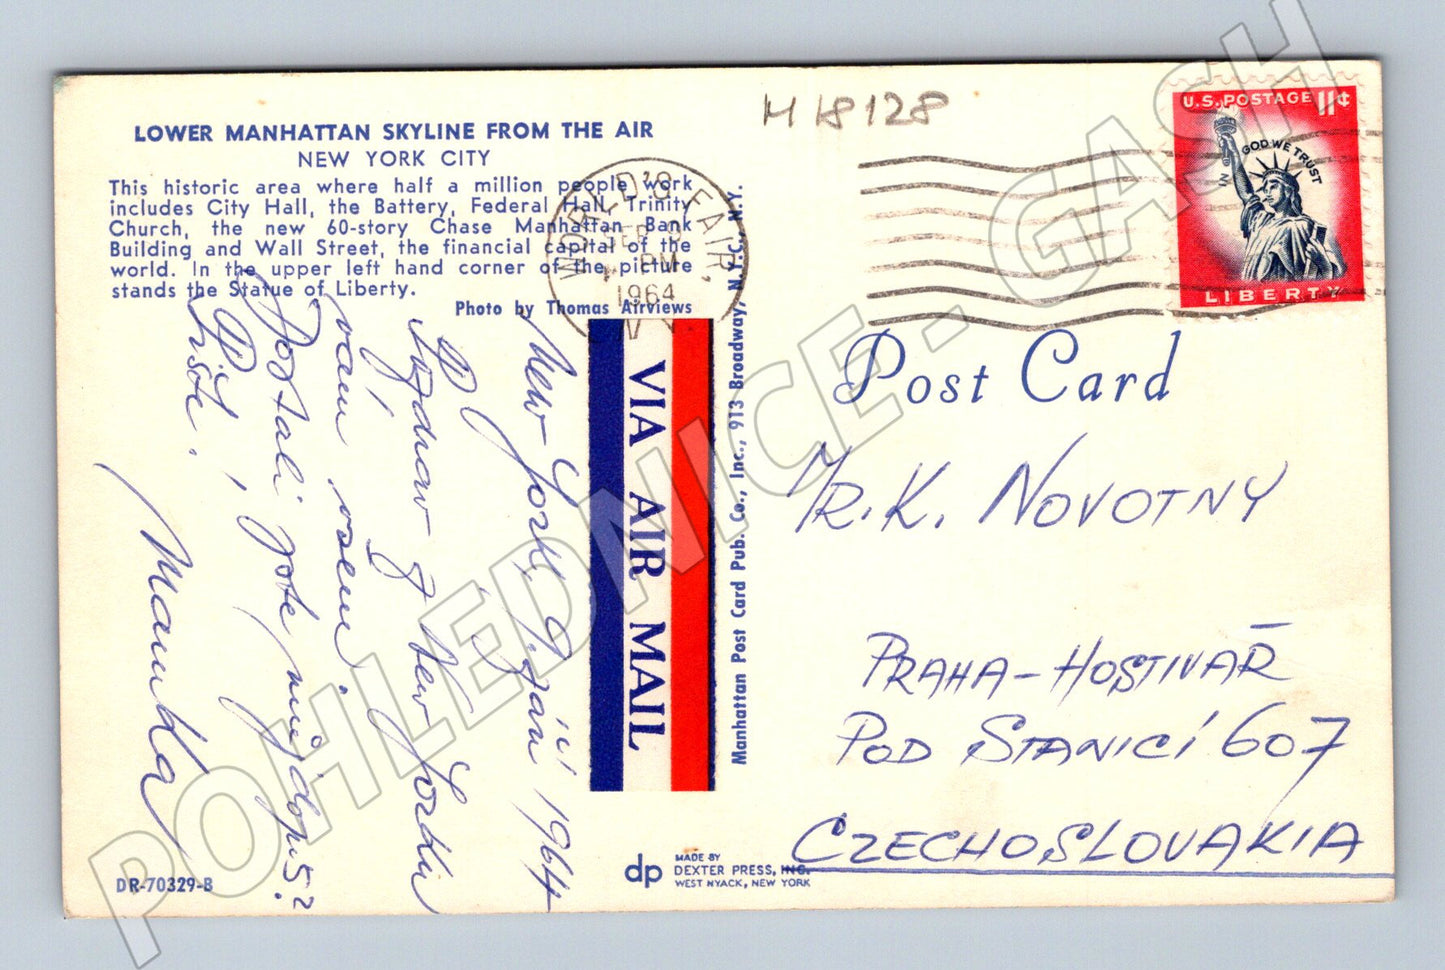 LOWER MANHATTAN SKYLINE FROM THE AIR
NEW YORK CITY
This historic area where half a million people work
includes City Hall, the Battery, Federal Hall, Trinity
Church, the new 60-story Chase Manhattan Bank
Building and Wall Street, the financial capital of the
world. In the upper left hand corner of the picture
stands the Statue of Liberty.
Photo by Thomas Airviews
New York 9. září 1964
Pozdrav z New Yorku
vám všem
Dostali jste můj dopis?
Pište.
Mařenka
DR-70329-B
VIA AIR MAIL
Manhattan Post Card Pub. Co., Inc., 913 Broadway, N.Y.C., N.Y.
dp
MADE BY
DEXTER PRESS, INC.
WEST NYACK, NEW YORK
H 18128
WORLD'S FAIR,
PM
1964
N Y
U.S. POSTAGE 11¢
IN GOD WE TRUST
LIBERTY
Post Card
MR. K. NOVOTNY
PRAHA-HOSTIVAŘ
POD STANICÍ 607
CZECHOSLOVAKIA
POHLEDNICE - GASH